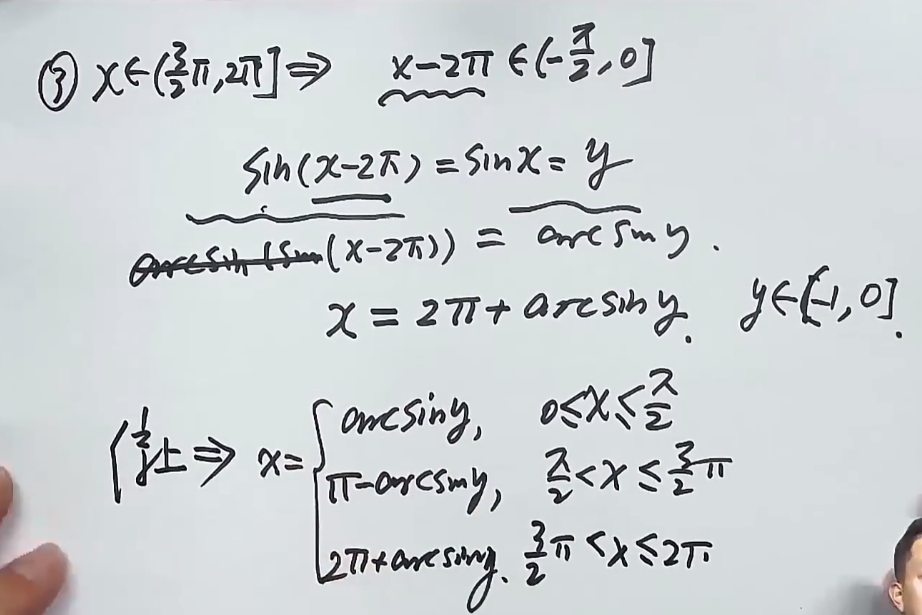 ③ x∈(3/2π,2π] ⇒ x-2π∈(-π/2,0]
sin(x-2π)=sinx=y
arcsin(sin(x-2π))=arcsiny.
x=2π+arcsiny. y∈(-1,0].
综上⇒ x={arcsiny, 0≤x≤π/2
π-arcsiny, π/2<x≤3/2π
2π+arcsiny. 3/2π<x≤2π.